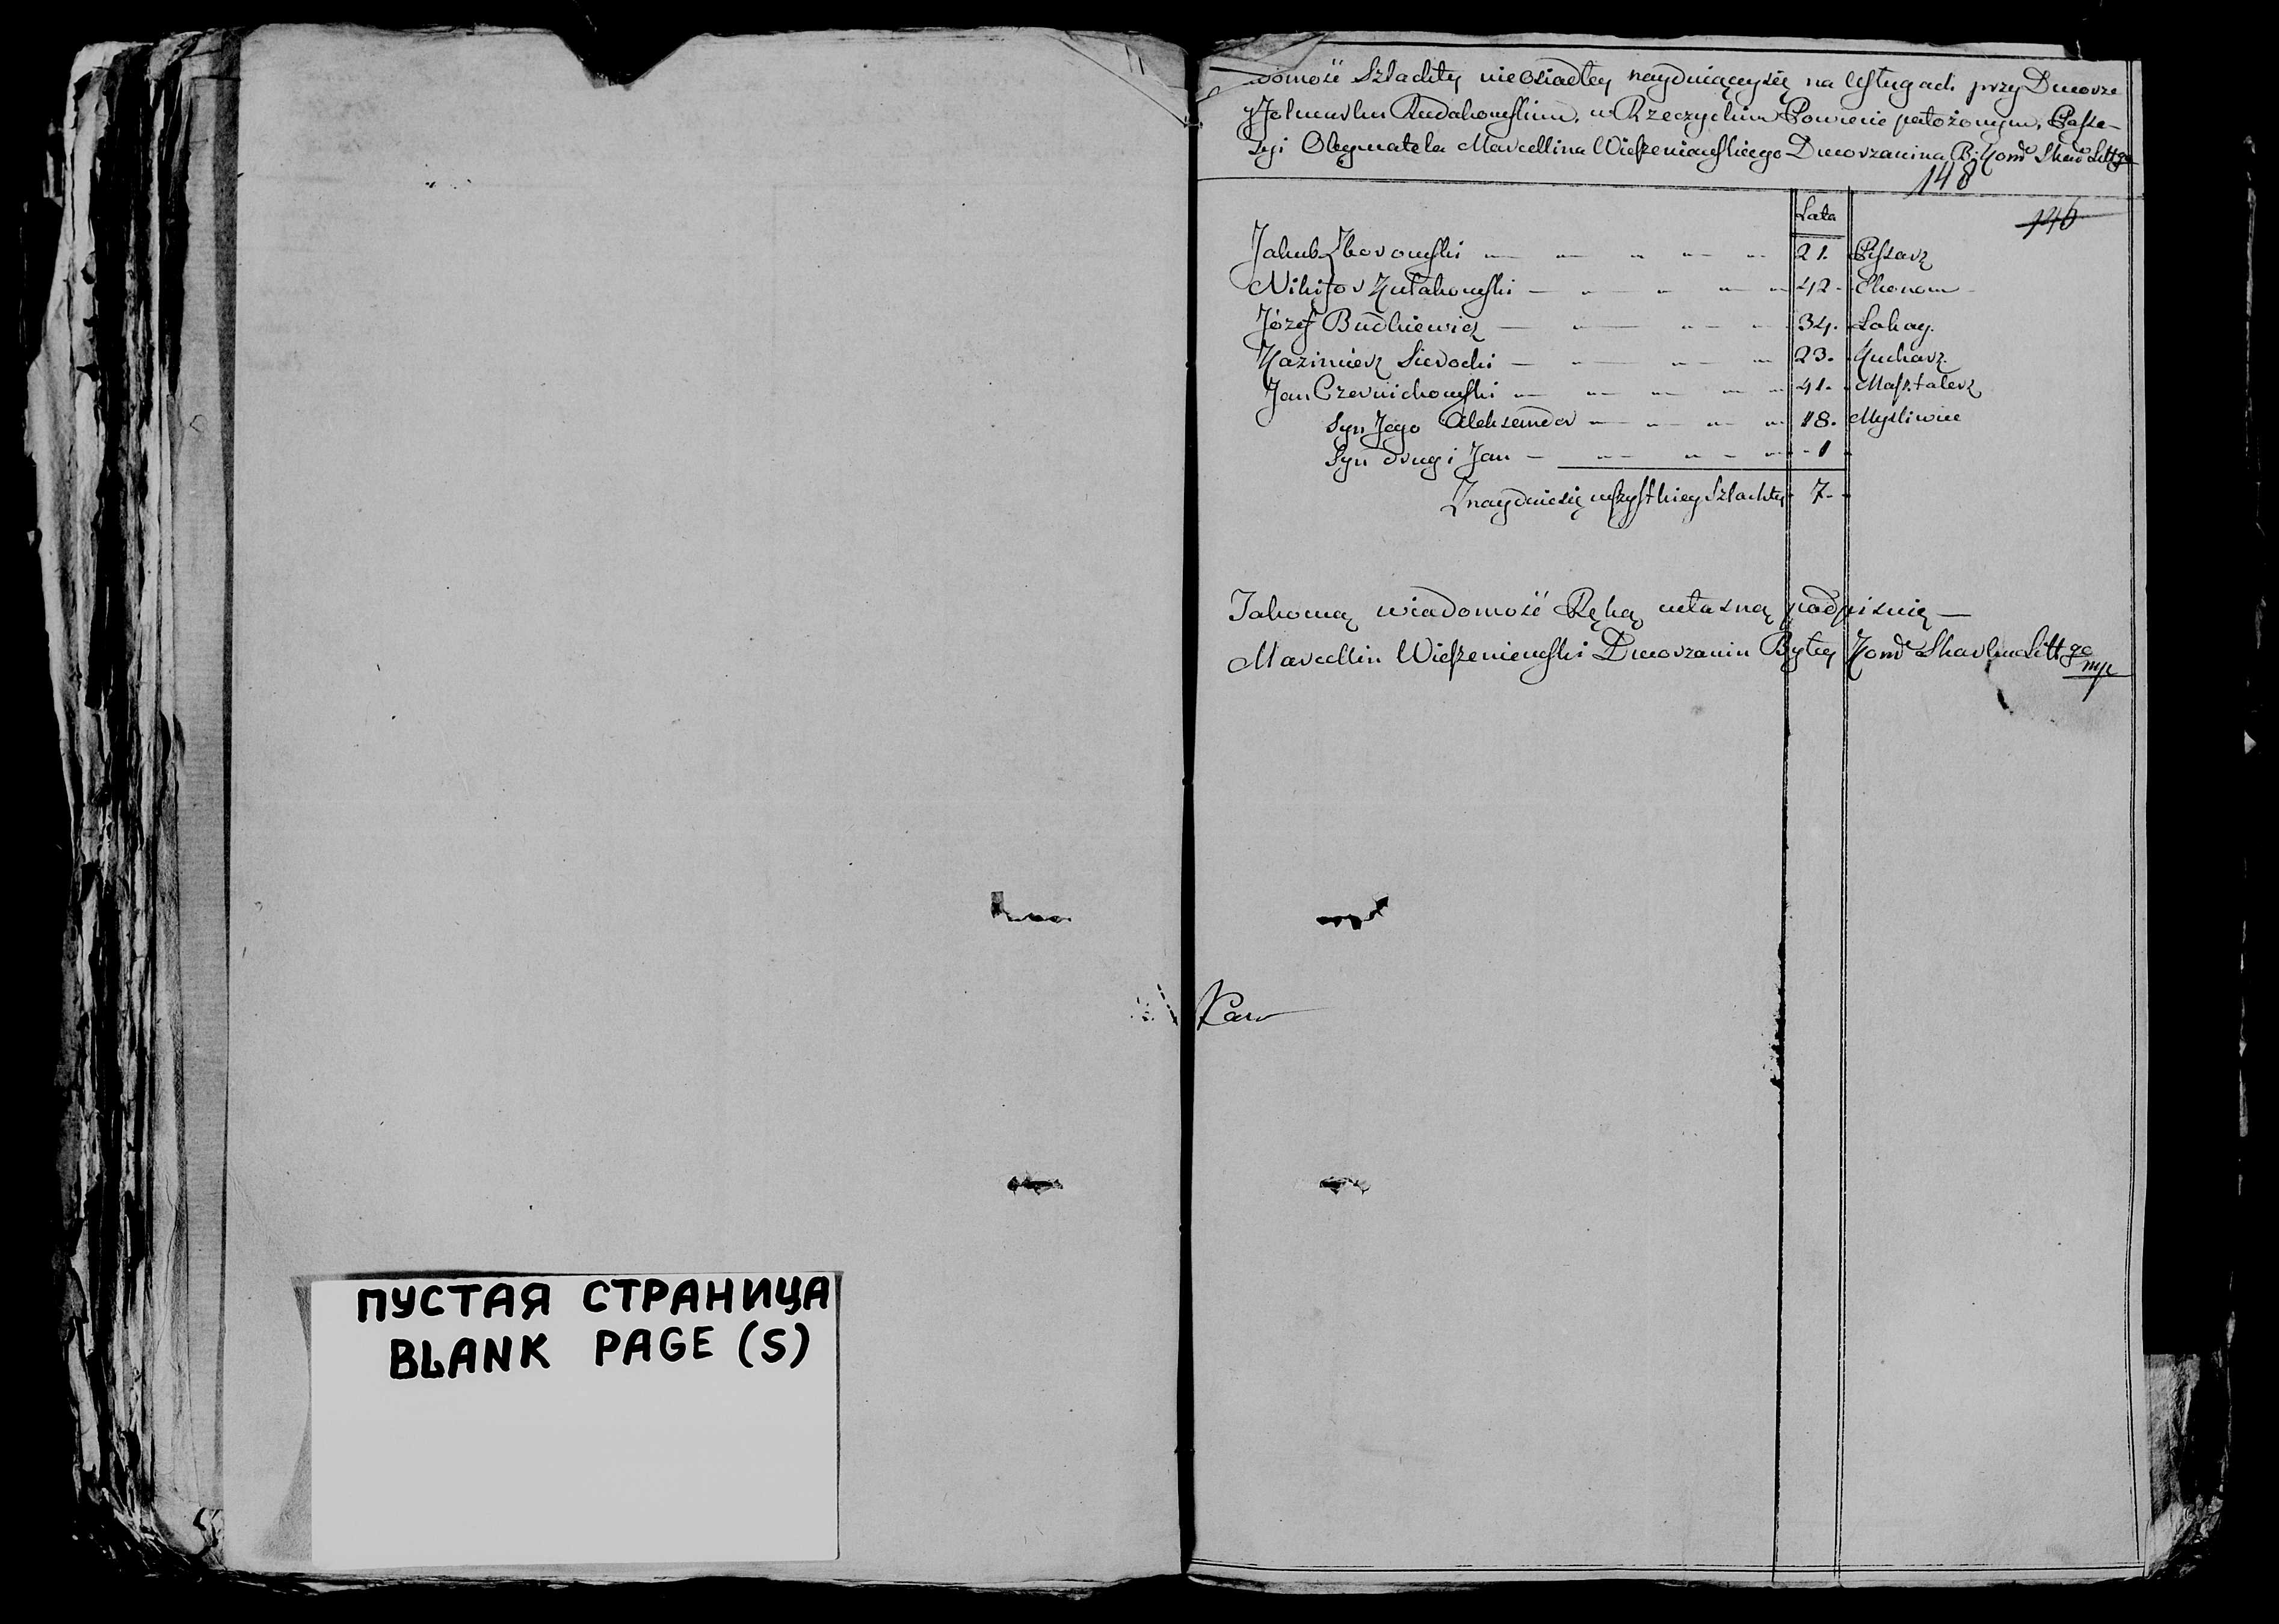 ПУСТАЯ СТРАНИЦА
BLANK PAGE (S)
domość Szlachty nieosiadłey nayduiącysię na Usługach przy Dworze
y Folwarku Rudakowskim, w Rzeczyckim Powiecie położonym, Posse-
syi Obywatela Marcellina Wiszeniewskiego Dworzanina B: Kom̃ Skar Litt go
148
146
Lata
Jakub Zborowski 21. Pisarz
Nikifor Kułakowski 42 Ekonom
Józef Budkiewicz 34. Lokay.
Kazimierz Sierocki 23. Kucharz.
Jan Czernichowski 41. Masztalerz
Syn Jego Aleksander 18. Mysliwiec
Syn drugi Jan 1
Znayduiesię wszystkiey Szlachty 7
Jakową wiadomość Ręką własną podpisuię
Marcellin Wiszeniewski Dworzanin Byłey Kom̃ Skarbu Litt go
mp